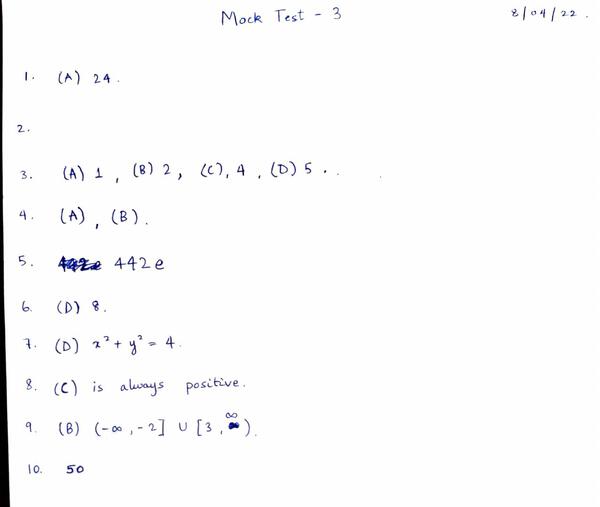 Mock Test - 3 8/04/22.
1. (A) 24.
2.
3. (A) 1, (B) 2, (C), 4, (D) 5..
4. (A), (B).
5. 442e
6. (D) 8.
7. (D) x² + y² = 4.
8. (C) is always positive.
9. (B) (-∞, -2] ∪ [3, ∞).
10. 50